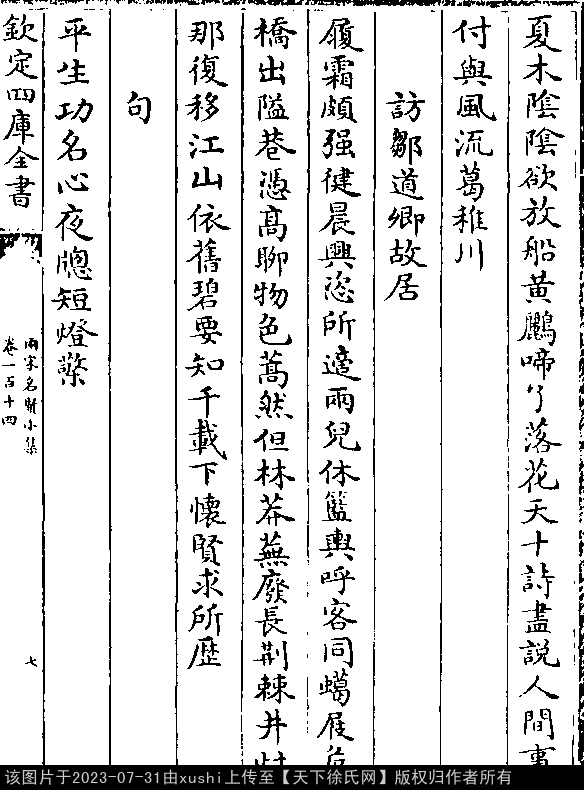 夏木陰陰欲放船黃鸝啼了落花天十詩盡說人間事
付與風流葛稚川
訪鄒道卿故居
履霜頗强健晨興恣所適兩兒休籃輿呼客同蠟屐危
橋出隘巷憑高聊物色蒿然但林莽蕪廢長荆棘井
那復移江山依舊碧要知千載下懷賢求所歴
句
平生功名心夜牕短燈檠
欽定四庫全書
兩宋名賢小集
卷一百十四
七
该图片于2023-07-31由xushi上传至【天下徐氏网】版权归作者所有